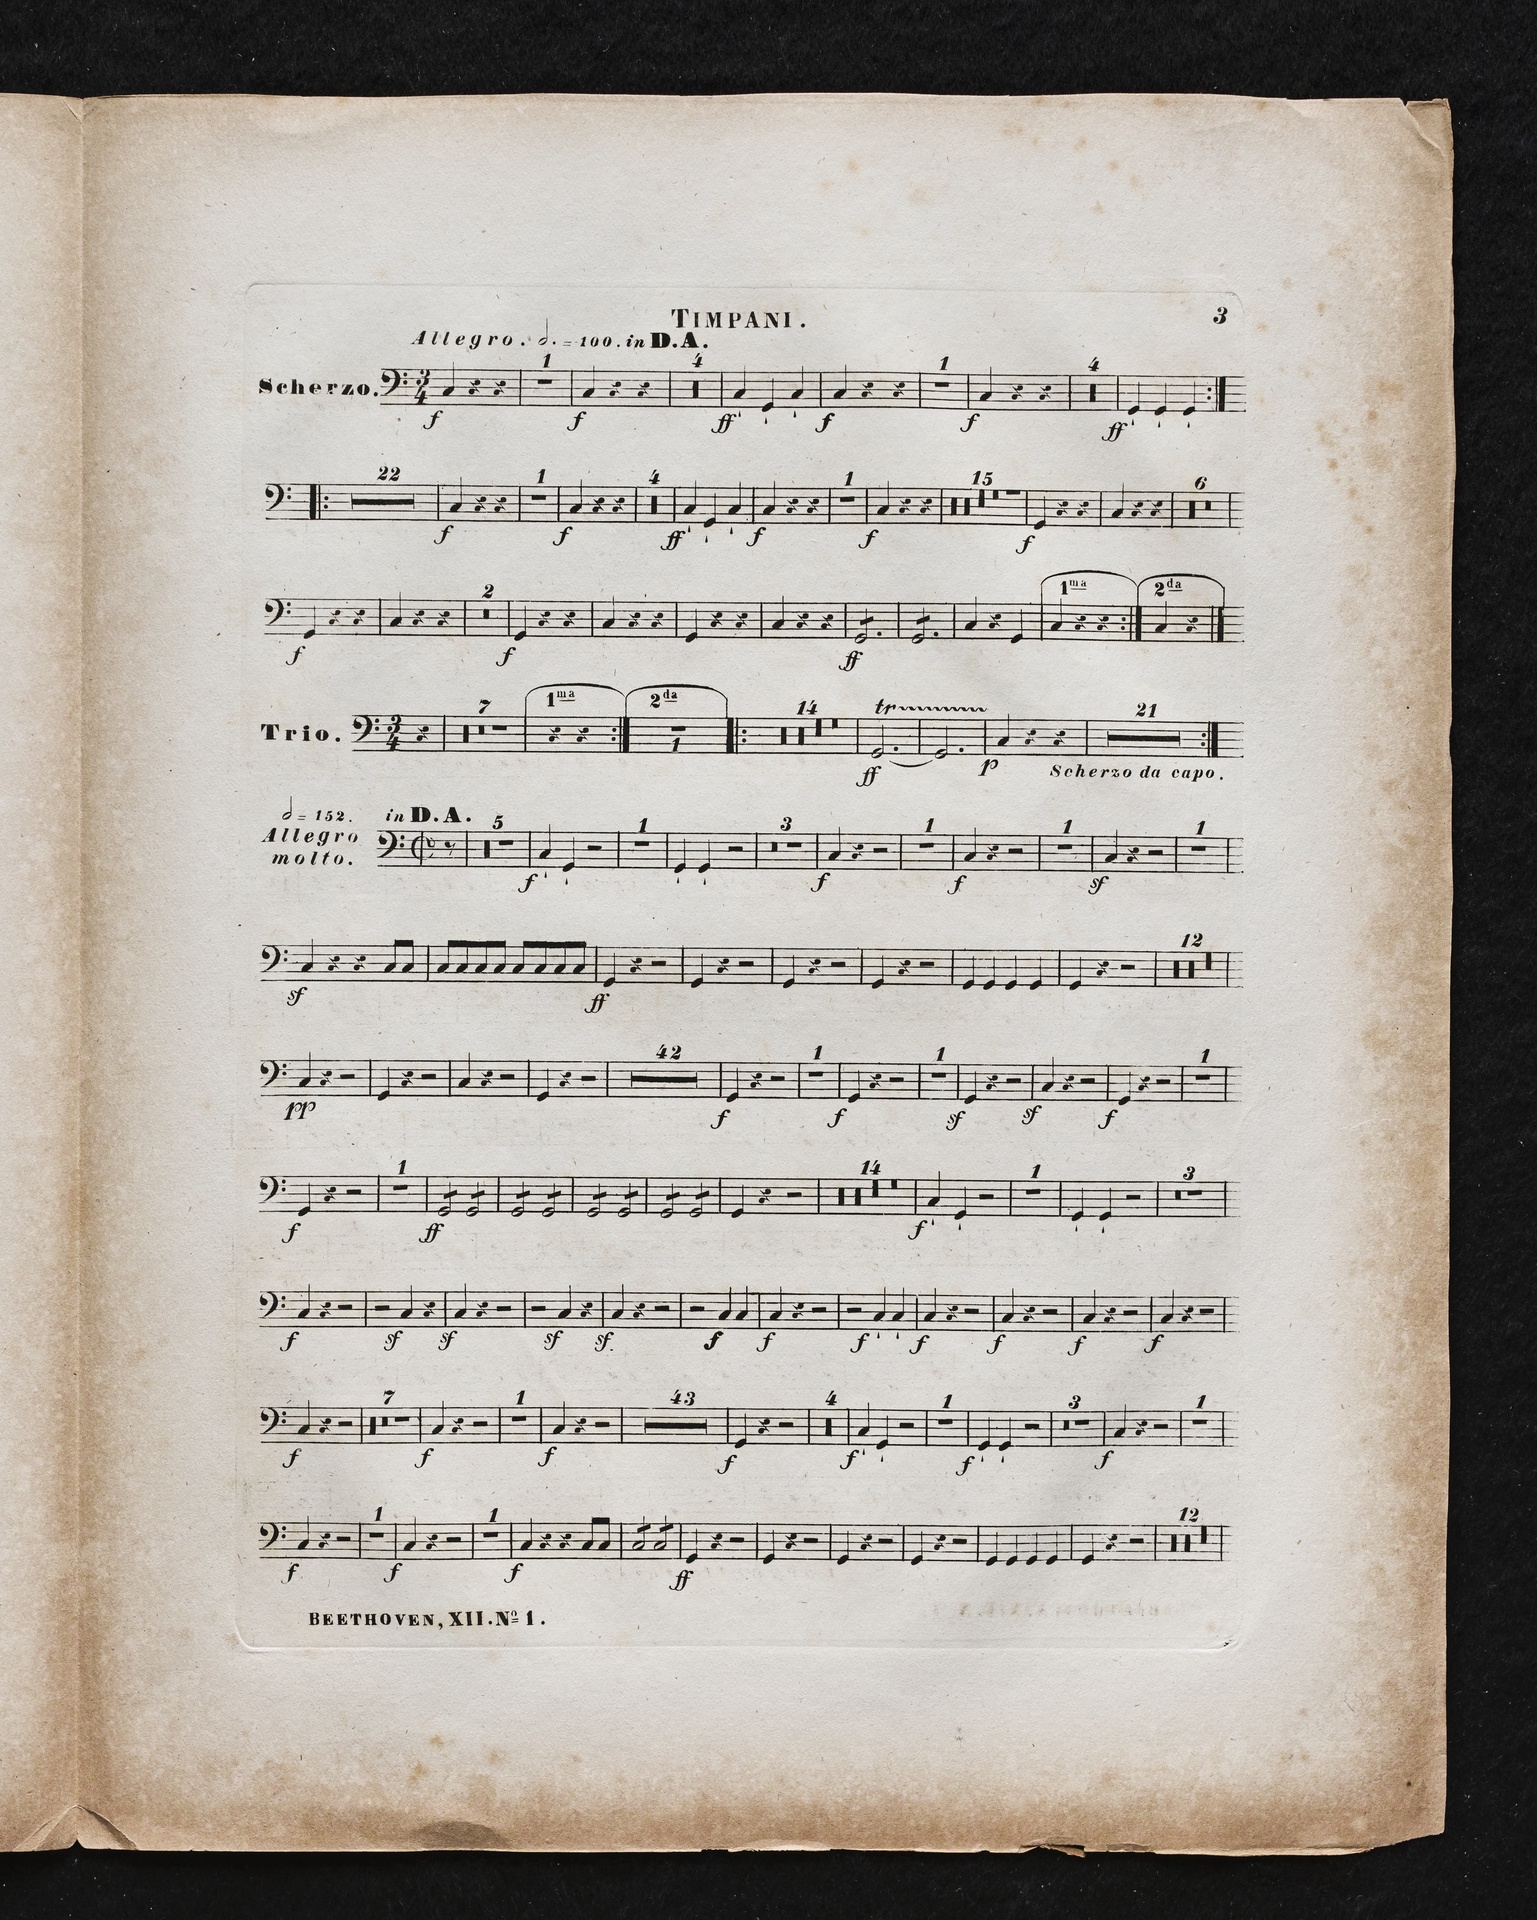 TIMPANI.
3
Allegro. 𝅗𝅥. = 100. in D.A.
Scherzo.
1 4 1 4
f f ff f f ff
22 1 4 1 15 6
f f ff f f f
2 1ma 2da
f f ff
7 1ma 2da 14 tr 21
Trio.
1
ff p Scherzo da capo.
𝅗𝅥 = 152. in D.A.
Allegro
molto.
5 1 3 1 1 1
f f f sf
12
sf ff
42 1 1 1
pp f f sf sf f
1 14 1 3
f ff f
f sf sf sf sf. f f f f f f f
7 1 43 4 1 3 1
f f f f f f f
1 1 12
f f f ff
BEETHOVEN, XII. No 1.